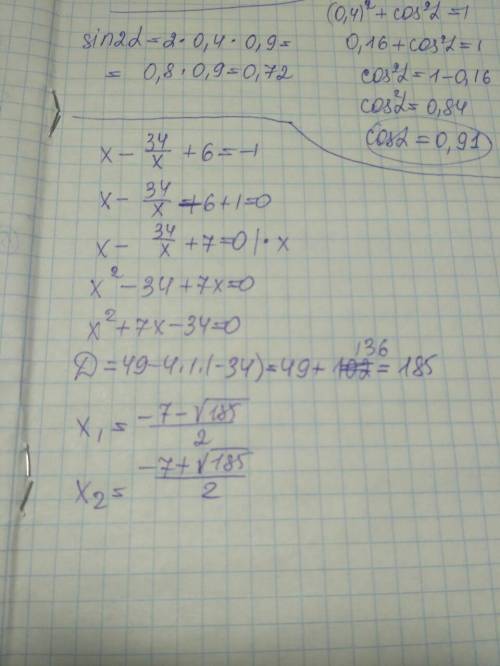 (0,4)² + cos²α = 1
sin2α = 2 · 0,4 · 0,9 =
= 0,8 · 0,9 = 0,72
0,16 + cos²α = 1
cos²α = 1 - 0,16
cos²α = 0,84
cosα = 0,91
x - 34/x + 6 = -1
x - 34/x + 6 + 1 = 0
x - 34/x + 7 = 0 | · x
x² - 34 + 7x = 0
x² + 7x - 34 = 0
D = 49 - 4 · 1 · (-34) = 49 + 136 = 185
x₁ = (-7 - √185)/2
x₂ = (-7 + √185)/2